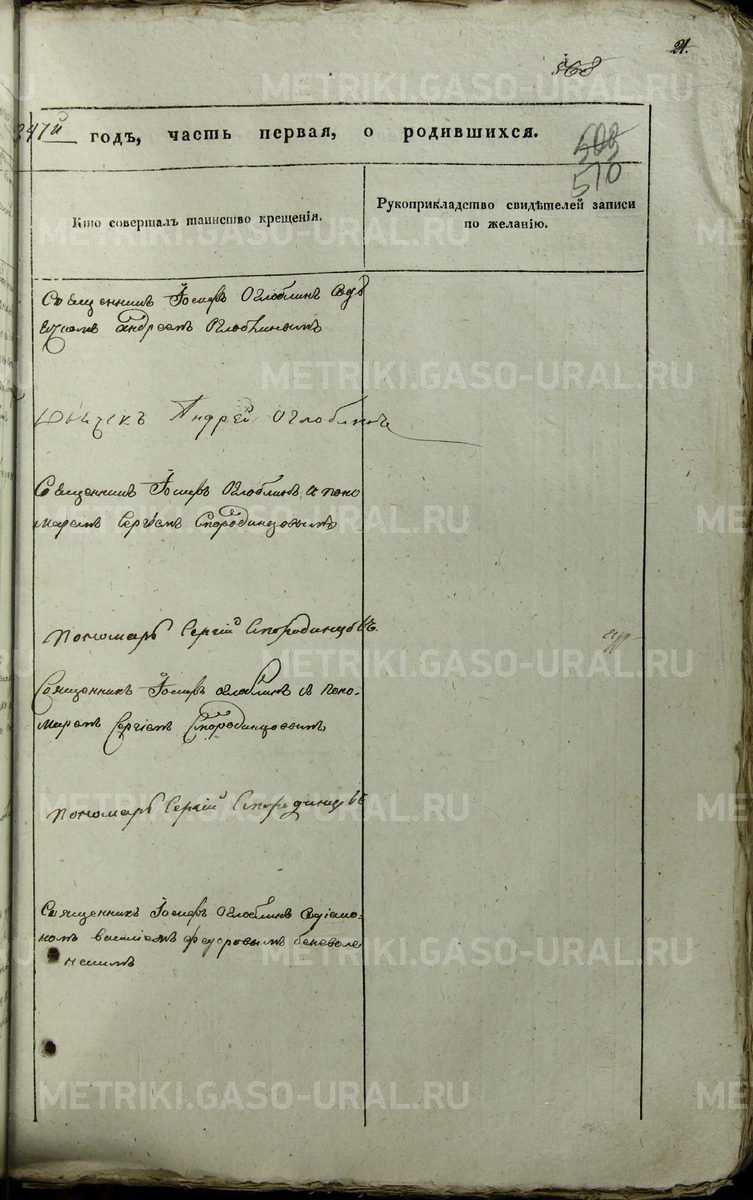 21.
568
503
510
847й годъ, часть первая, о родившихся.
Кто совершалъ таинство крещенія.
Рукоприкладство свидѣтелей записи
по желанію.
Священникъ Іосифъ Оглоблинъ съ дь
ячкомъ Андреемъ Оглоблинымъ
Дьячекъ Андрей Оглоблинъ
Священникъ Іосифъ Оглоблинъ и поно
маремъ Сергіемъ Стородинцовымъ
Пономарь Сергій Стородинцовъ.
Священникъ Іосифъ Оглоблинъ и поно-
маремъ Сергіемъ Стородинцовымъ
Пономарь Сергій Стородинцовъ
Священникъ Іосифъ Оглоблинъ съ діако-
номъ Василіемъ Федоровымъ Беневоле
нскимъ
METRIKI.GASO-URAL.RU